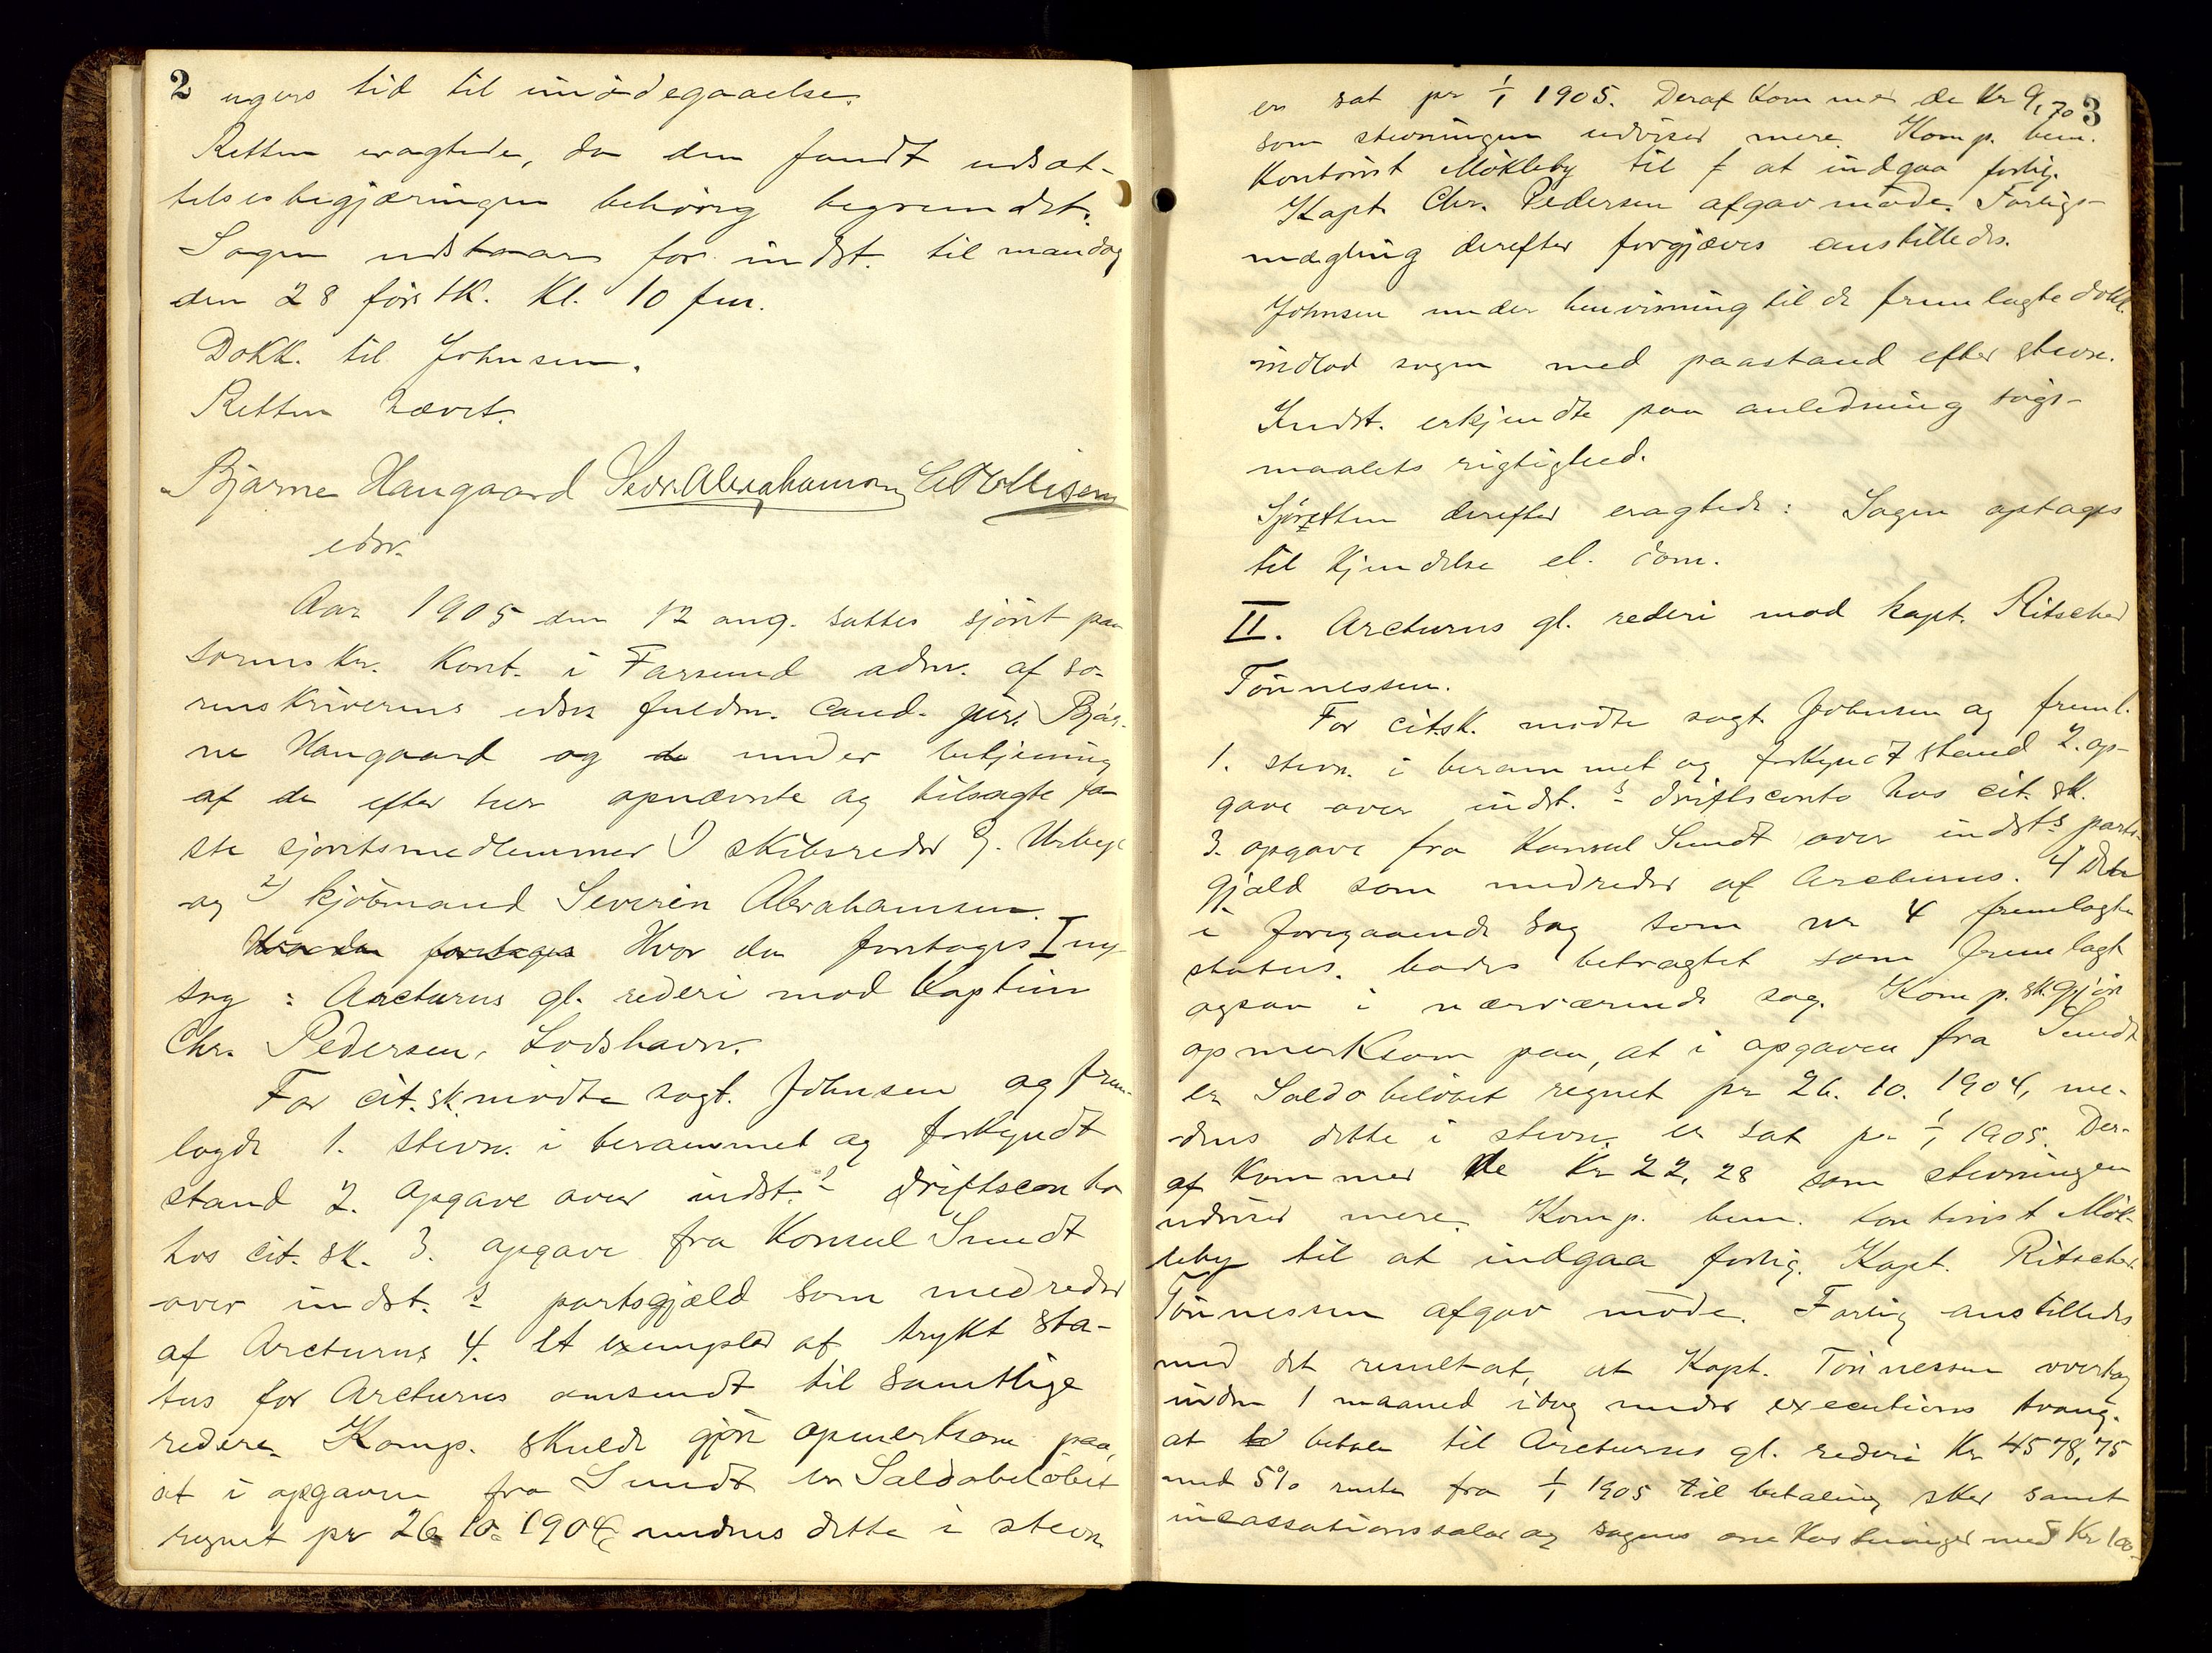 2
ugers tid til imødegaaelse.
Retten eragtede, da den fandt udsæt-
telsesbegjæringen behørig begrundet.
Sagen udstaar for indst. til mandag
den 28 førstk. Kl. 10 fm.
Dokk. til Johnsen.
Retten hævet.
Bjarne Haugaard Sevr. Abrahamsen
edsv.
Aar 1905 den 12 aug. sattes sjøret paa
sorenskr. Kont. i Farsund adm. af so-
renskriverens edsv. fuldm. cand. jur. Bjar-
ne Haugaard og de under betjening
af de efter tur opnævnte og tilsagte fa-
ste sjøretsmedlemmer 1) skibsreder
og 2) kjøbmand Severin Abrahamsen.
Hvor da foretages Hvor da foretages I ny
sag: Arcturus gl. rederi mod Kaptein
Chr. Pedersen, Lodshavn.
For cit.sk. mødte sagf. Johnsen og frem-
lagde 1. stevn. i berammet og forkyndt
stand 2. Opgave over indst.s driftsconto
hos cit. sk. 3. opgave fra Konsul Sundt
over indst.s partsgjæld som medreder
af Arcturus 4. Et exemplar af trykt sta-
tus for Arcturus omsendt til samtlige
redere. Komp. skulde gjøre opmerksom paa,
at i opgaven fra Sundt er Saldobeløbet
regnet pr 26. 10. 1904, medens dette i stevn.
3
er sat pr 1/1 1905. Deraf kommer de Kr 9,70
som stevningen udviser mere. Komp. bem.
Kontorist Møkleby til at indgaa forlig.
Kapt. Chr. Pedersen afgav møde. Forligs-
mægling derefter forgjæves anstilledes.
Johnsen under henvisning til de fremlagte dokk.
indlod sagen med paastand efter stevn.
Indst. erkjendte paa anledning søgs-
maalets rigtighed.
Sjøretten derefter eragtede: Sagen optages
til Kjendelse el. dom.
II. Arcturus gl. rederi mod kapt. Ritscher
Tønnessen.
For cit.sk. mødte sagf. Johnsen og freml.
1. stevn. i berammet og forkyndt stand 2. op-
gave over indst.s driftsconto hos cit. sk.
3. opgave fra Konsul Sundt over indst.s parts-
gjæld som medreder af Arcturus. 4 Den
i foregaaende sag som nr 4 fremlagte
status. bedes betragtet som fremlagt
ogsaa i nærværende sag. Komp. sk. gjøre
opmerksom paa, at i opgaven fra Sundt
er Saldobeløbet regnet pr 26. 10. 1904, me-
dens dette i stevn. er sat pr 1/1 1905. Der-
af kommer de Kr 22,28 som stevningen
udviser mere. Komp. bem. kontorist Møk-
leby til at indgaa forlig. Kapt. Ritscher
Tønnessen afgav møde. Forlig anstilledes
med det resultat, at Kapt. Tønnessen vedtog
inden 1 maaned idag under executions tvang.
at betale til Arcturus gl. rederi Kr 4578,75
med 5% rente fra 1/1 1905 til betaling sker samt
incassationssalær og sagens omkostninger med Kr 100-